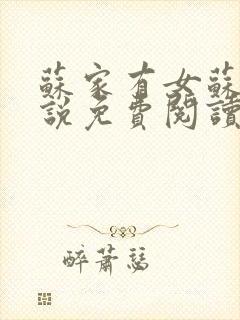 蘇家有女蘇
說免費閱讀
醉蕭瑟